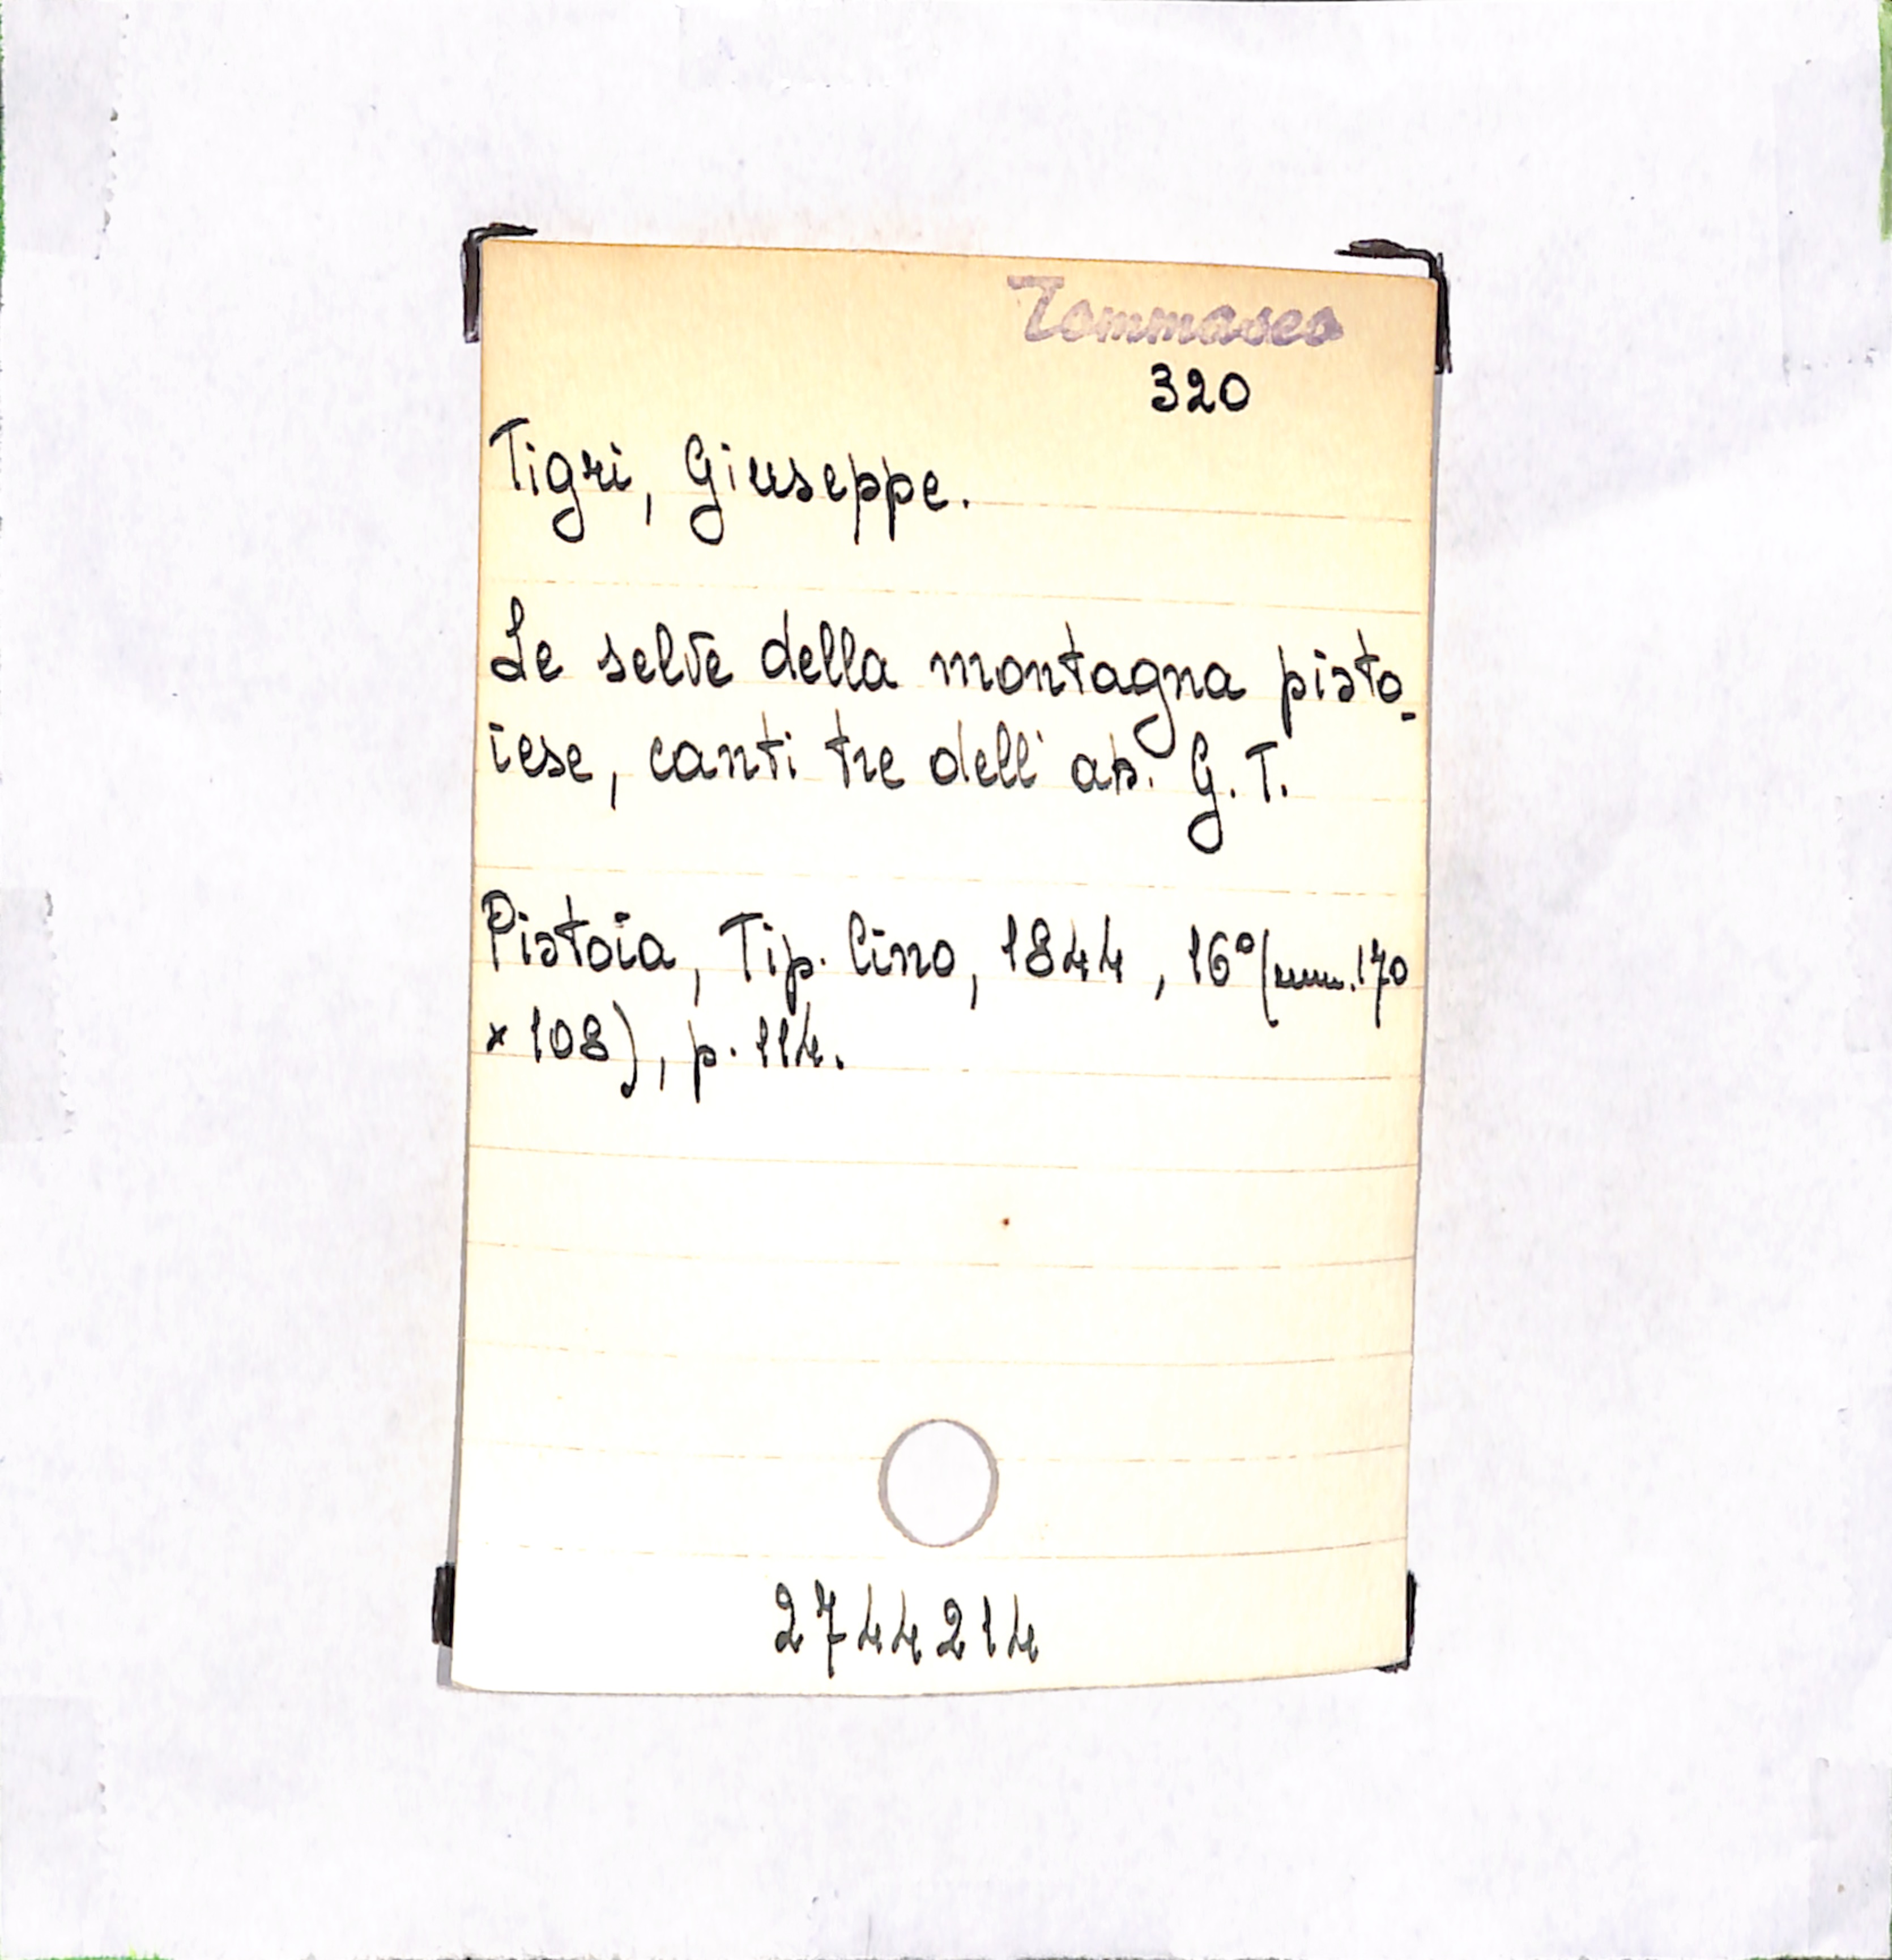 Tommaseo
320
Tigri, Giuseppe.
Le selve della montagna pisto-
iese, canti tre dell' ab. G. T.
Pistoia, Tip. Cino, 1844, 16° (mm. 170
× 108), p. 114.
2744214